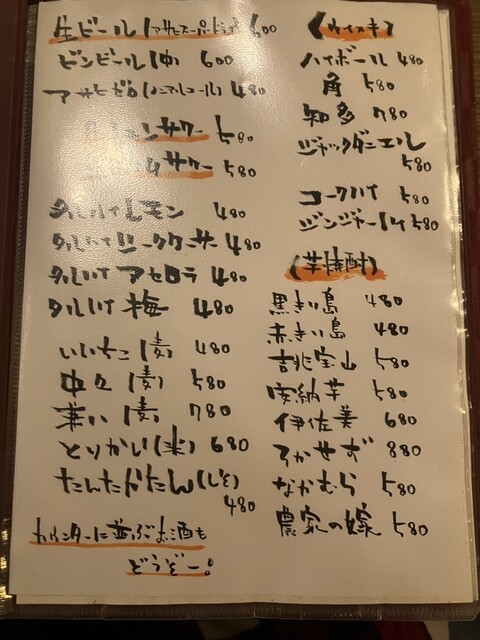 生ビール(アサヒスーパードライ) 600
ビンビール(中) 600
アサヒゼロ(ノンアルコール) 480
サワー 580
サワー 580
タルハイ レモン 480
タルハイ シークワーサー 480
タルハイ アセロラ 480
タルハイ 梅 480
いいちこ(麦) 480
中々(麦) 580
兼八(麦) 780
とりかい(米) 680
たんたかたん(しそ)
480
カウンターに並ぶお酒も
どうぞー。
(ウイスキー)
ハイボール 480
角 580
知多 780
ジャックダニエル
580
コークハイ 580
ジンジャーハイ 580
(芋焼酎)
黒きり島 480
赤きり島 480
 吉兆宝山 580
安納芋 580
伊佐美 680
ろかせず 880
なかむら 580
農家の嫁 580